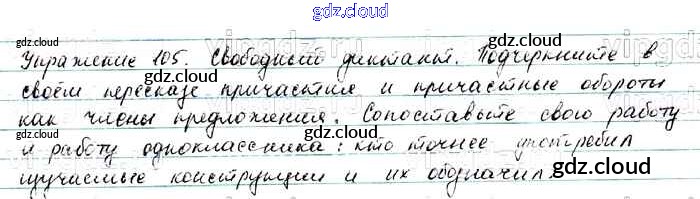 gdz.cloud
Упражнение 105. Свободный диктант. Подчеркните в
своём пересказе причастия и причастные обороты
как члены предложения. Сопоставьте свою работу
и работу одноклассника: кто точнее употребил
изучаемые конструкции и их обозначил.
gdz.cloud
gdz.cloud
gdz.cloud
gdz.cloud
gdz.cloud
gdz.cloud
gdz.cloud
gdz.cloud